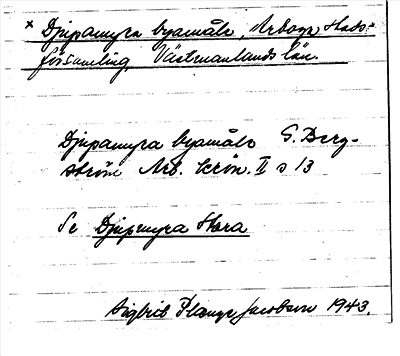 x Djupamyra byamåla, Arboga Stads-
församling, Västmanlands län.
Djupamyra byamåla G. Berg-
ström Arb. krön. II s 13
Se Djupmyra Stora
Sigbrit Plænge Jacobson 1943.